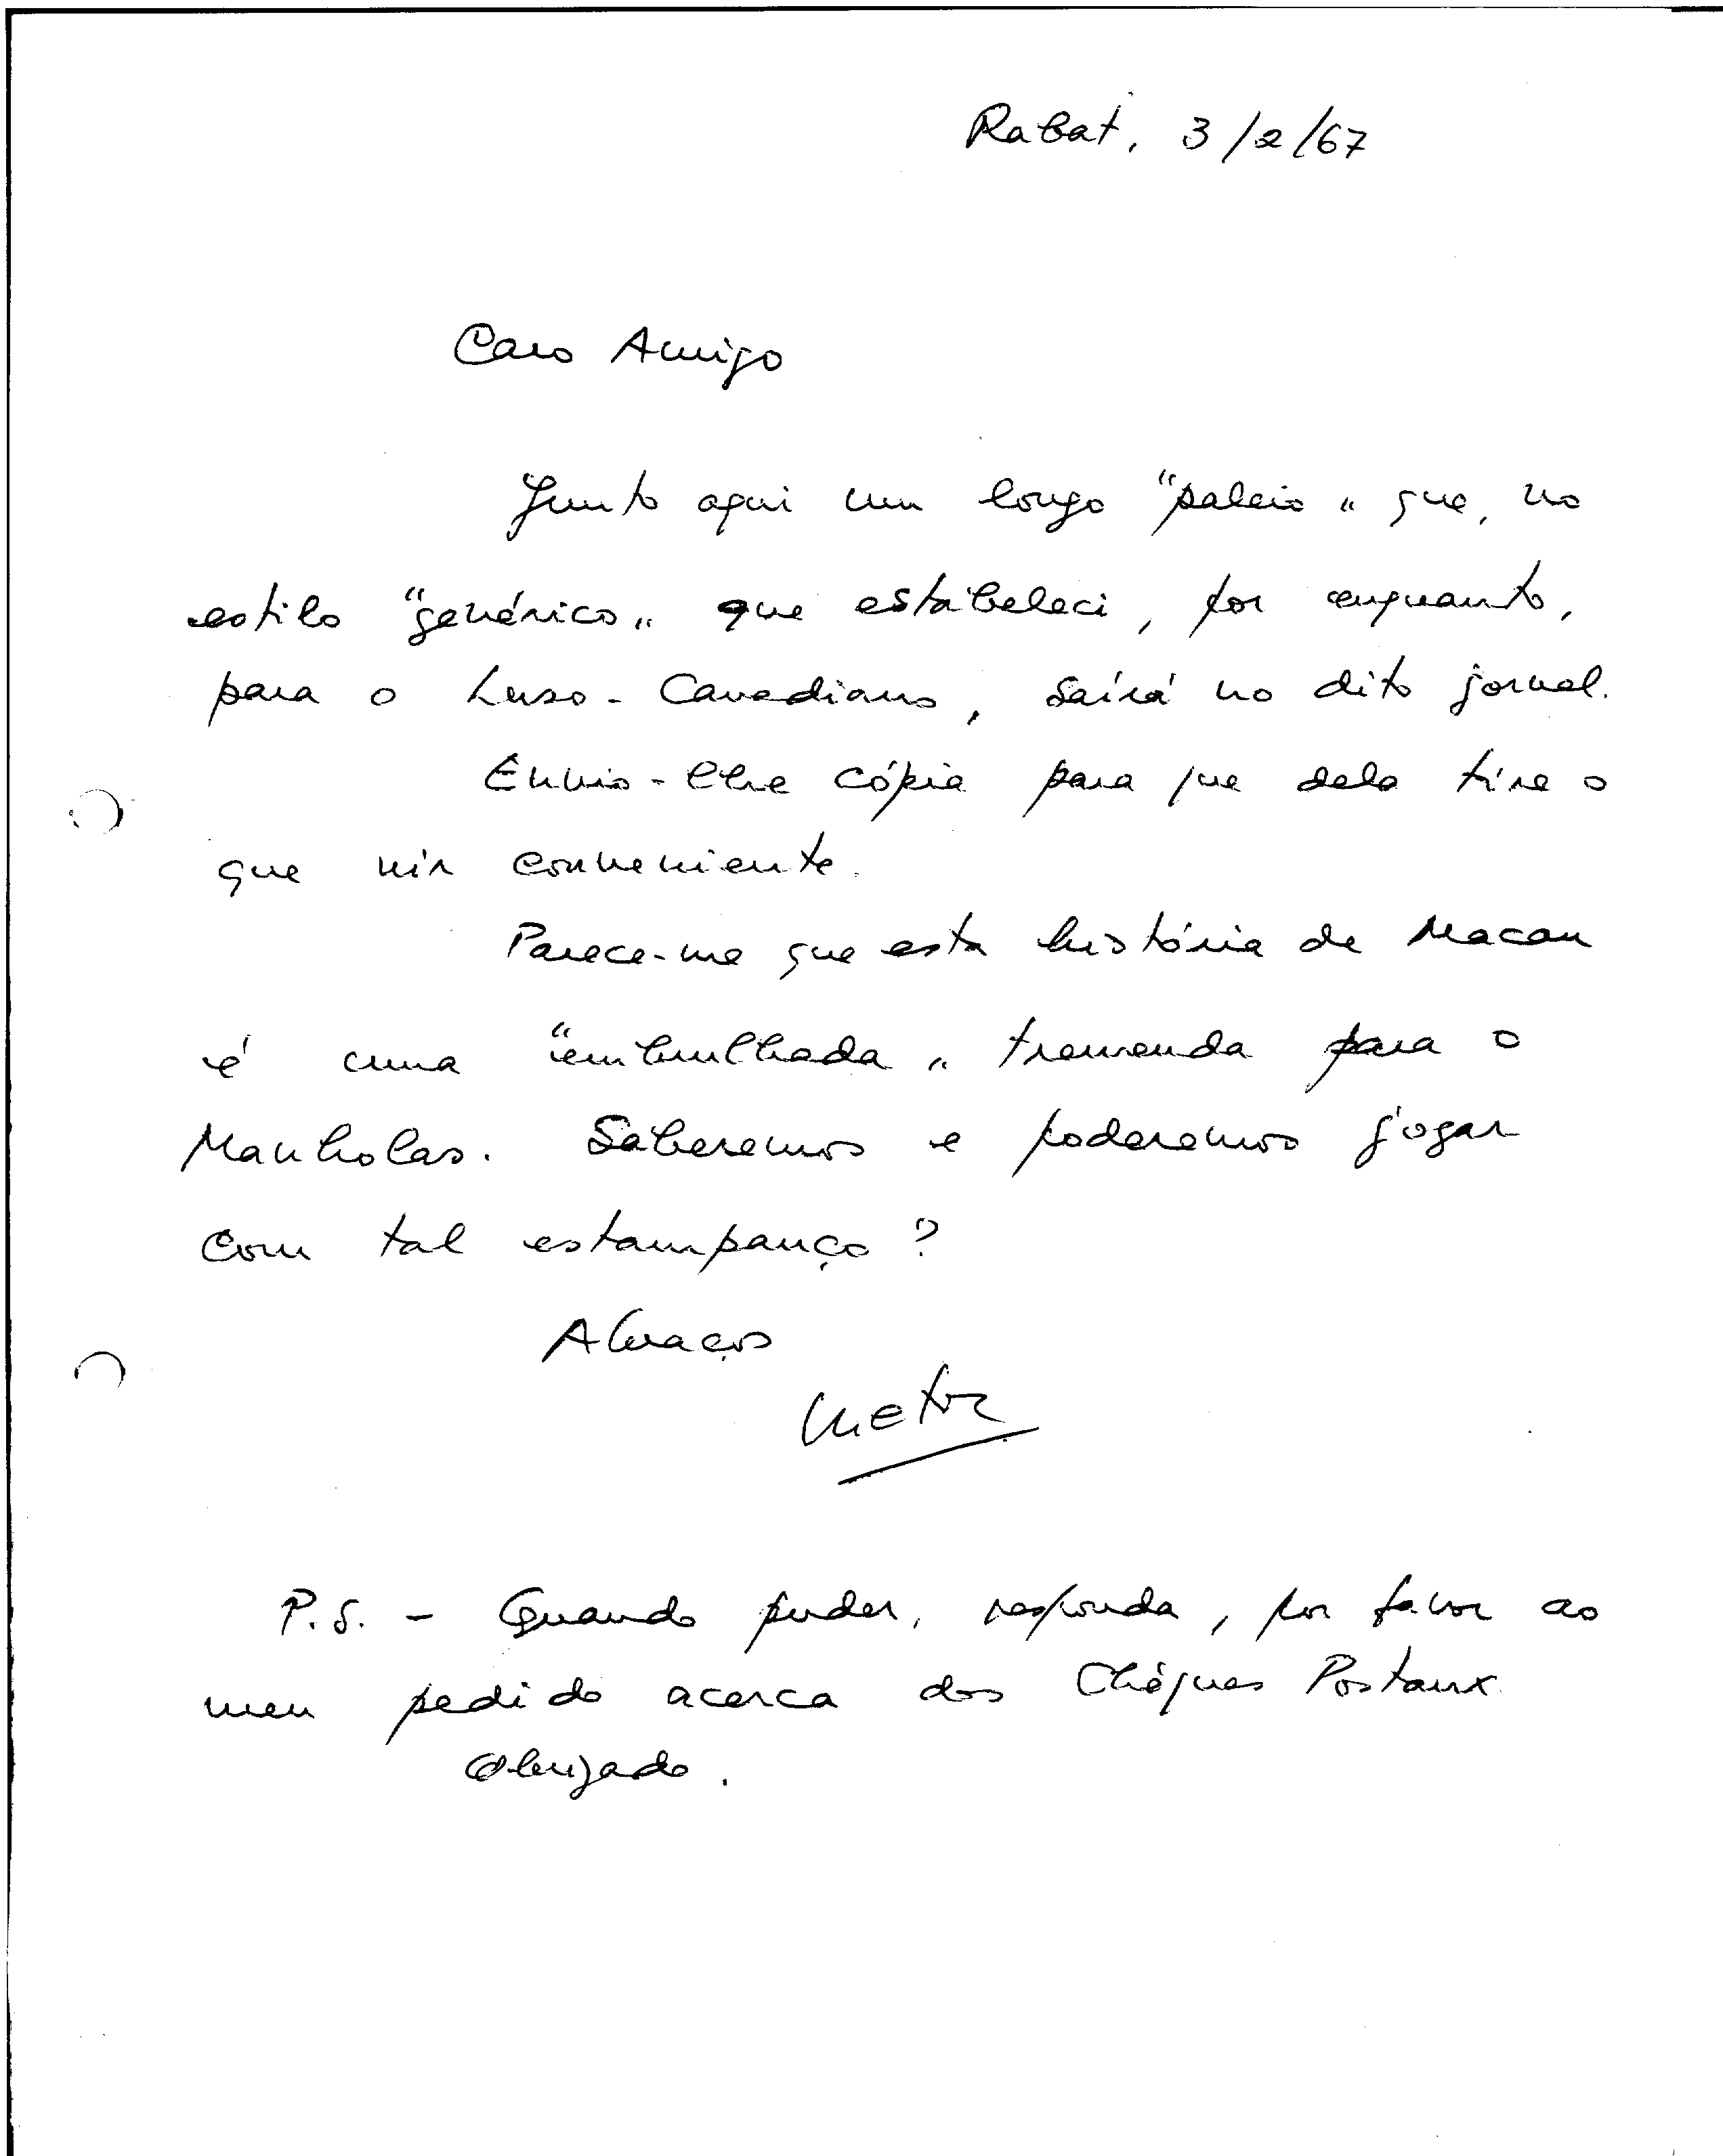 Rabat, 3/2/67
Caro Amigo
Junto aqui um longo "paleio" que, no
estilo "genérico" que estabeleci, por enquanto,
para o Luso-Canadiano, saírá no dito jornal.
Envio-lhe cópia para que dela tire o
que vir conveniente.
Parece-me que esta história de Macau
é uma "embrulhada" tremenda para o
Manholas. Saberemos e poderemos jogar
com tal estampanço?
Abraços
P.S. - Quando puder, responda, por favor ao
meu pedido acerca dos Chéques Postaux
Obrigado.